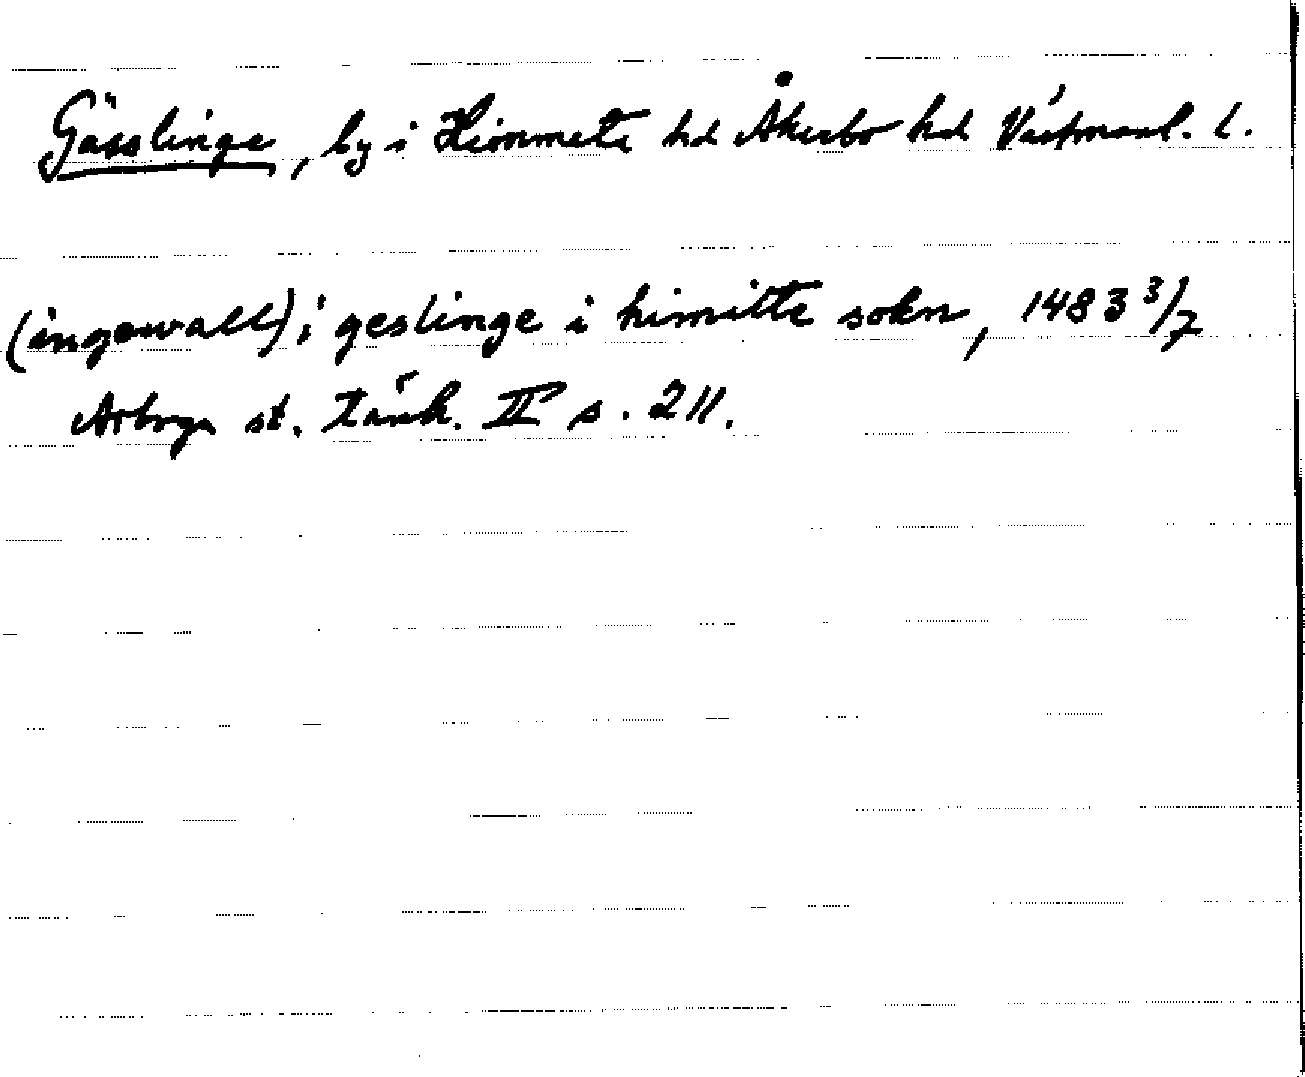 Gässlinge, by i Himmeta hd Åkerbo hd Västmanl. l.
(ingewall) i geslinge i himitte sokn, 1483 3/7
Arboga st. tänk. II s. 211.